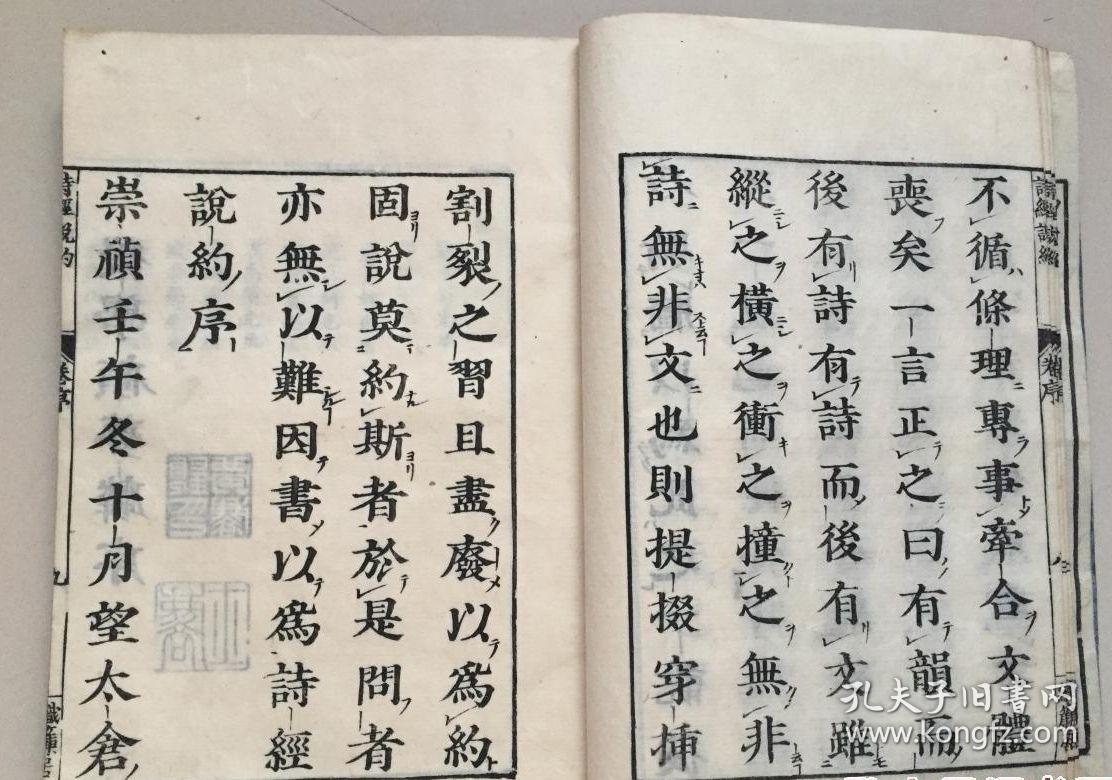 不循條理專事牽合文體
喪矣一言正之曰有韻而
後有詩有詩而後有文雖
縱之橫之衝之撞之無非
詩無非文也則提掇穿揷
割裂之習且盡廢以爲約
固說莫約斯者於是問者
亦無以難因書以爲詩經
說約序
崇禎壬午冬十月望太倉
詩經說約
孔夫子旧书网
www.kongfz.com